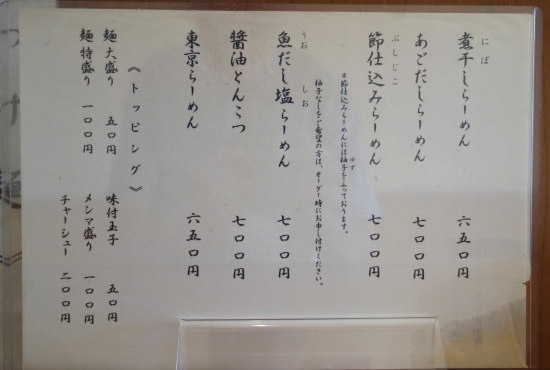 煮干しらーめん 六五〇円
にぼ
あごだしらーめん 七〇〇円
節仕込みらーめん 七〇〇円
ぶしじこ
※節仕込みらーめんには柚子をふっております。
ゆず
柚子なしをご希望の方は、オーダー時にお申し付けください。
魚だし塩らーめん 七〇〇円
うお しお
醤油とんこつ 七〇〇円
東京らーめん 六五〇円
《トッピング》
麺大盛り 五〇円
味付玉子 五〇円
麺特盛り 一〇〇円
メンマ盛り 一〇〇円
チャーシュー 二〇〇円